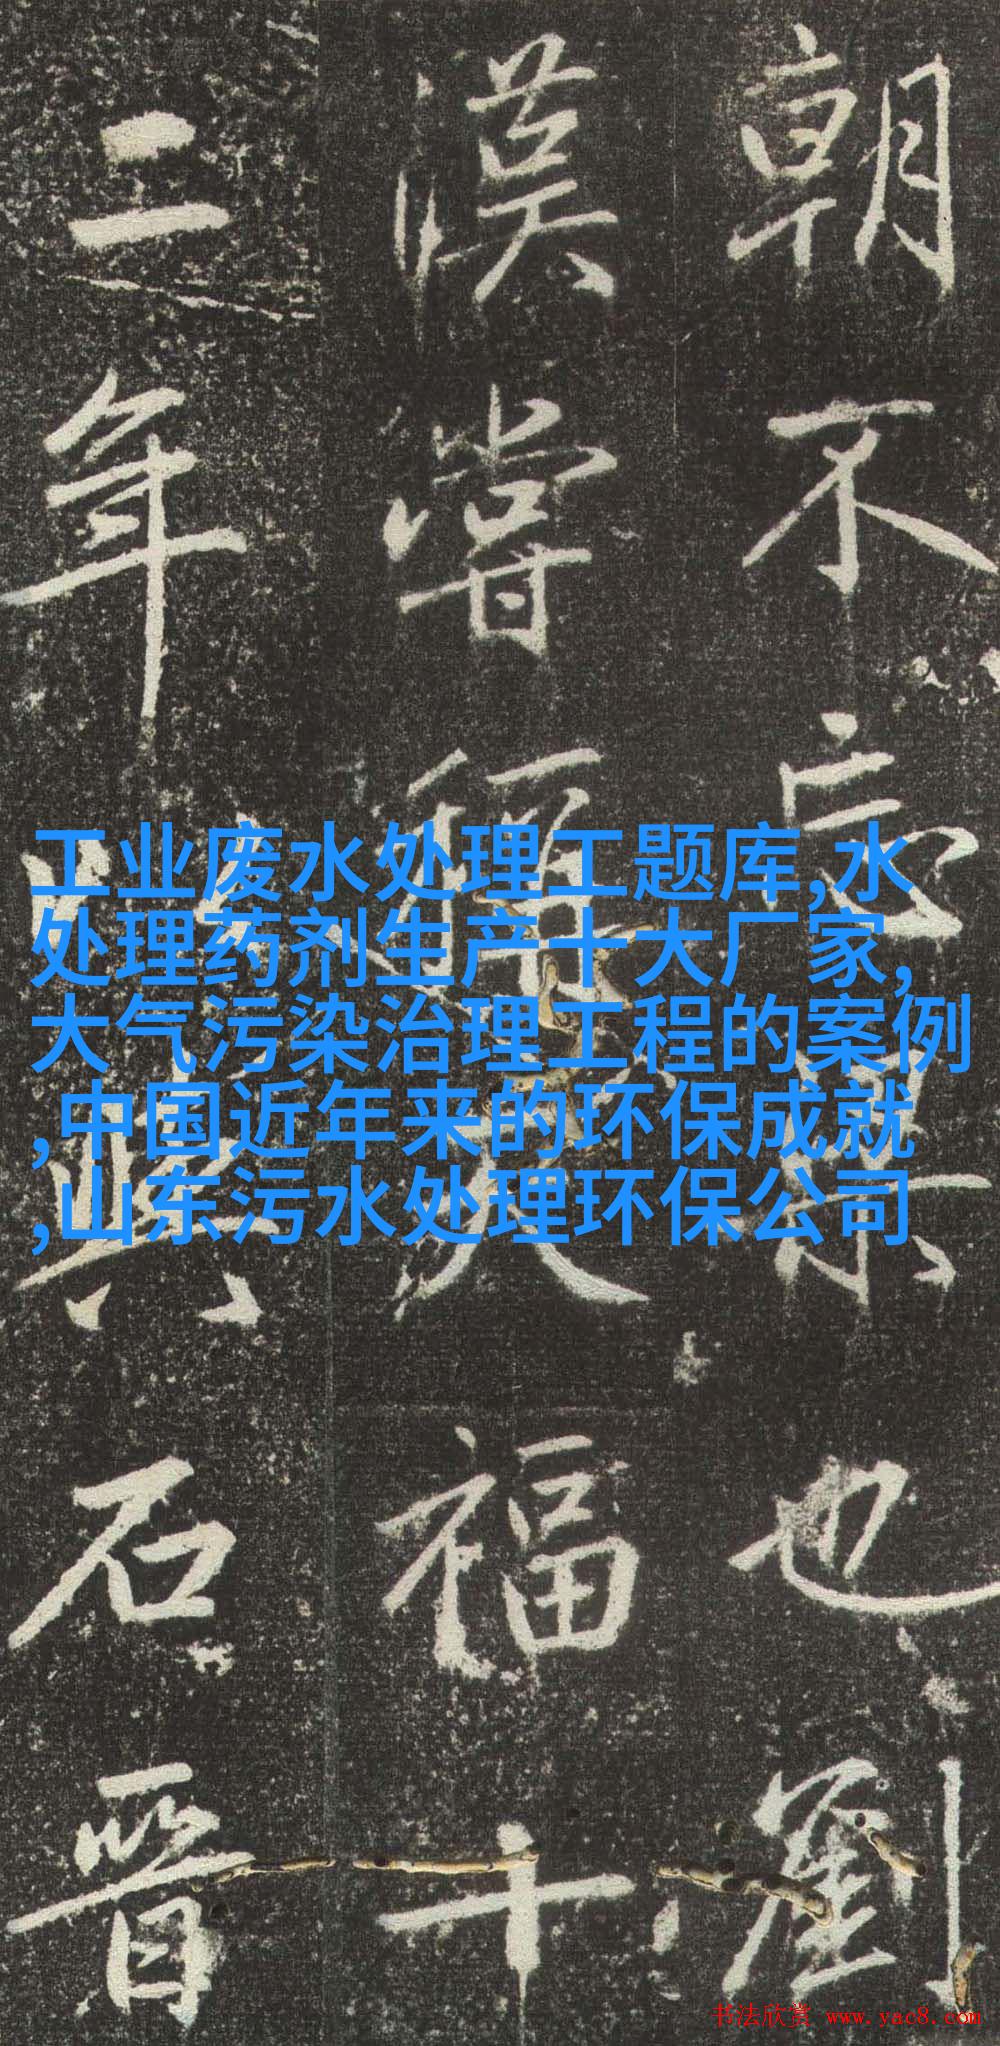 朝不忘也劉
漢嘗稱天福十
二年此與石晉
工业废水处理工题库,水
处理药剂生产十大厂家,
大气污染治理工程的案例
,中国近年来的环保成就
,山东污水处理环保公司
书法欣赏 www.yac8.com